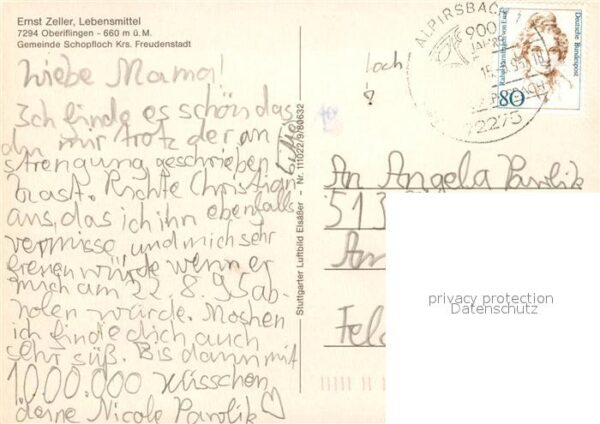 Ernst Zeller, Lebensmittel
7294 Oberiflingen - 660 m ü. M.
Gemeinde Schopfloch Krs. Freudenstadt
Liebe Mama!
Ich finde es schön das
du mir trotz der an
strengung geschrieben
hast. Richte Christian
bitte
aus, das ich ihn ebenfalls
vermisse und mich sehr
freuen würde wenn er
mich am 22.8.95 ab-
holen würde.
ich finde dich auch
sehr süß. Bis dann mit
1000.000 Küsschen
deine Nicole Pawlik
Stuttgarter Luftbild Elsäßer - Nr. 111022/9/80632
loch!
ALPIRSBACH
900
JAHRE
72275
Deutsche Bundespost
Rahel Varnhagen von Ense
80
An Angela Pawlik
513
Am
Fel
privacy protection
Datenschutz